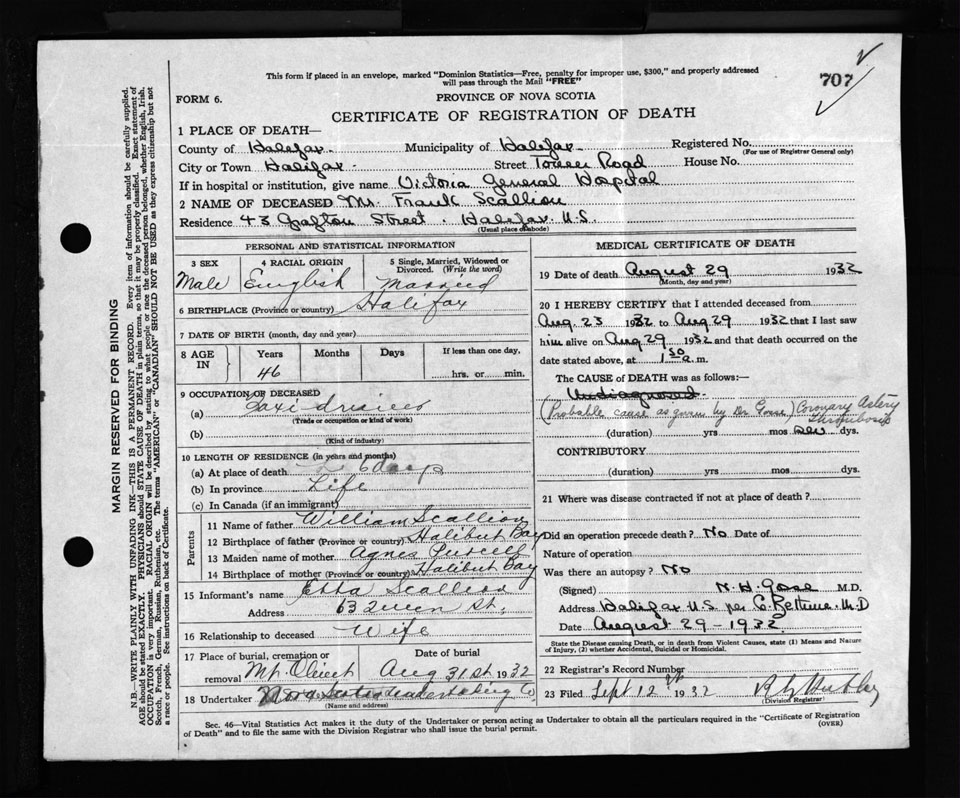 707
This form if placed in an envelope, marked "Dominion Statistics—Free, penalty for improper use, $300," and properly addressed
will pass through the Mail "FREE"
FORM 6.
PROVINCE OF NOVA SCOTIA
CERTIFICATE OF REGISTRATION OF DEATH
1 PLACE OF DEATH—
County of Halifax Municipality of Halifax Registered No.
(For use of Registrar General only)
City or Town Halifax Street Tower Road House No.
If in hospital or institution, give name Victoria General Hospital
2 NAME OF DECEASED Mr. Frank Scallion
Residence 43 Grafton Street. Halifax N.S.
(Usual place of abode)
PERSONAL AND STATISTICAL INFORMATION
3 SEX 4 RACIAL ORIGIN 5 Single, Married, Widowed or
Divorced. (Write the word)
Male English Married
6 BIRTHPLACE (Province or country) Halifax
7 DATE OF BIRTH (month, day and year)
8 AGE IN Years Months Days If less than one day,
46 hrs. or min.
9 OCCUPATION OF DECEASED
(a) Taxi driver
(Trade or occupation or kind of work)
(b)
(Kind of industry)
10 LENGTH OF RESIDENCE (in years and months)
(a) At place of death 6 days
(b) In province Life
(c) In Canada (if an immigrant)
Parents
11 Name of father William Scallion
12 Birthplace of father (Province or country) Halibut Bay
13 Maiden name of mother Agnes Purcell
14 Birthplace of mother (Province or country) Halibut Bay
15 Informant's name Etta Scallion
Address 63 Queen St.
16 Relationship to deceased Wife
17 Place of burial, cremation or removal Date of burial
Mt. Olivet Aug 31st 1932
18 Undertaker Nova Scotia Undertaking Co
(Name and address)
MEDICAL CERTIFICATE OF DEATH
19 Date of death August 29 1932
(Month, day and year)
20 I HEREBY CERTIFY that I attended deceased from
Aug 23 1932 to Aug 29 1932 that I last saw
him alive on Aug 29 1932 and that death occurred on the
date stated above, at 1 30 a.m.
The CAUSE OF DEATH was as follows:—
Undiagnosed
(Probable cause as given by Dr. Gosse) Coronary Artery
Thrombosis
(duration) yrs mos few dys.
CONTRIBUTORY
(duration) yrs mos dys.
21 Where was disease contracted if not at place of death?
Did an operation precede death? No Date of
Nature of operation
Was there an autopsy? No
(Signed) N. H. Gosse M.D.
Address Halifax N.S. per M.D
Date August 29 - 1932
State the Disease causing Death, or in death from Violent Causes, state (1) Means and Nature
of Injury, (2) whether Accidental, Suicidal or Homicidal.
22 Registrar's Record Number
23 Filed Sept 12 1932
(Division Registrar)
Sec. 46—Vital Statistics Act makes it the duty of the Undertaker or person acting as Undertaker to obtain all the particulars required in the "Certificate of Registration
of Death" and to file the same with the Division Registrar who shall issue the burial permit.
(OVER)
MARGIN RESERVED FOR BINDING
N.B.—WRITE PLAINLY WITH UNFADING INK—THIS IS A PERMANENT RECORD. Every item of information should be carefully supplied.
AGE should be stated EXACTLY. PHYSICIANS should STATE CAUSE OF DEATH in plain terms, so that it may be properly classified. Exact statement of
OCCUPATION is very important. RACIAL ORIGIN will be described by stating to what people or race the deceased person belonged, whether English, Irish,
Scotch, French, German, Russian, Ruthenian, etc. The terms "AMERICAN" or "CANADIAN" SHOULD NOT BE USED as they express citizenship but not
a race or people. See instructions on back of Certificate.